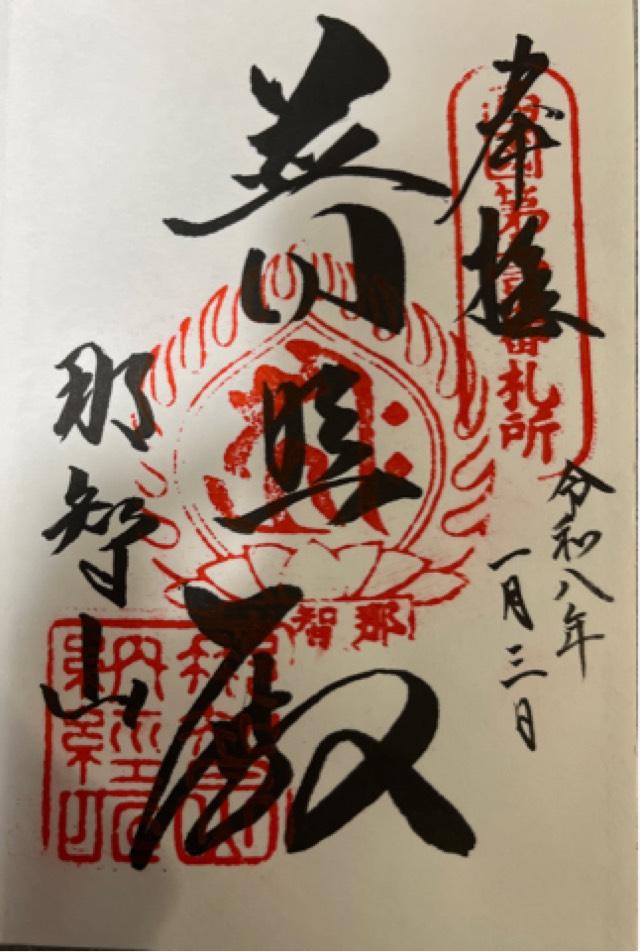 奉拝
令和八年
一月三日
普照殿
那智山
西国第一番札所
那智